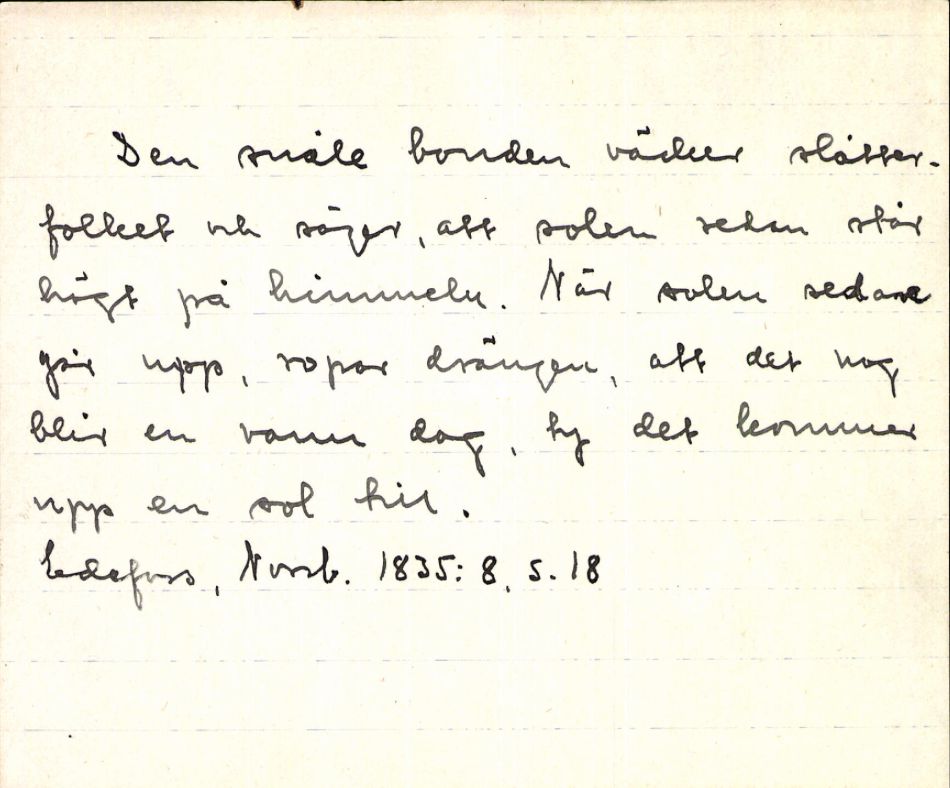 Den snåle bonden väcker slåtter-
folket och säger, att solen redan står
högt på himmeln. När solen sedan
går upp, ropar drängen, att det nog
blir en varm dag, ty det kommer
upp en sol till.
Edefors, Norrb. 1835: 8, s. 18